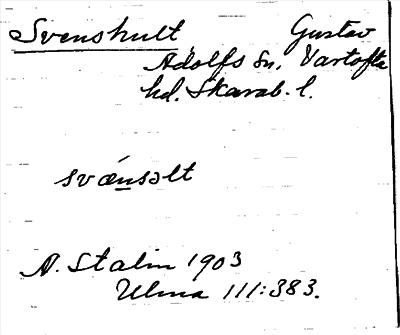 Svenshult Gustav
Adolfs sn. Vartofta
hd. Skarab. l.
svǽnsəlt
N. Stalin 1903
Ulma 111:383.